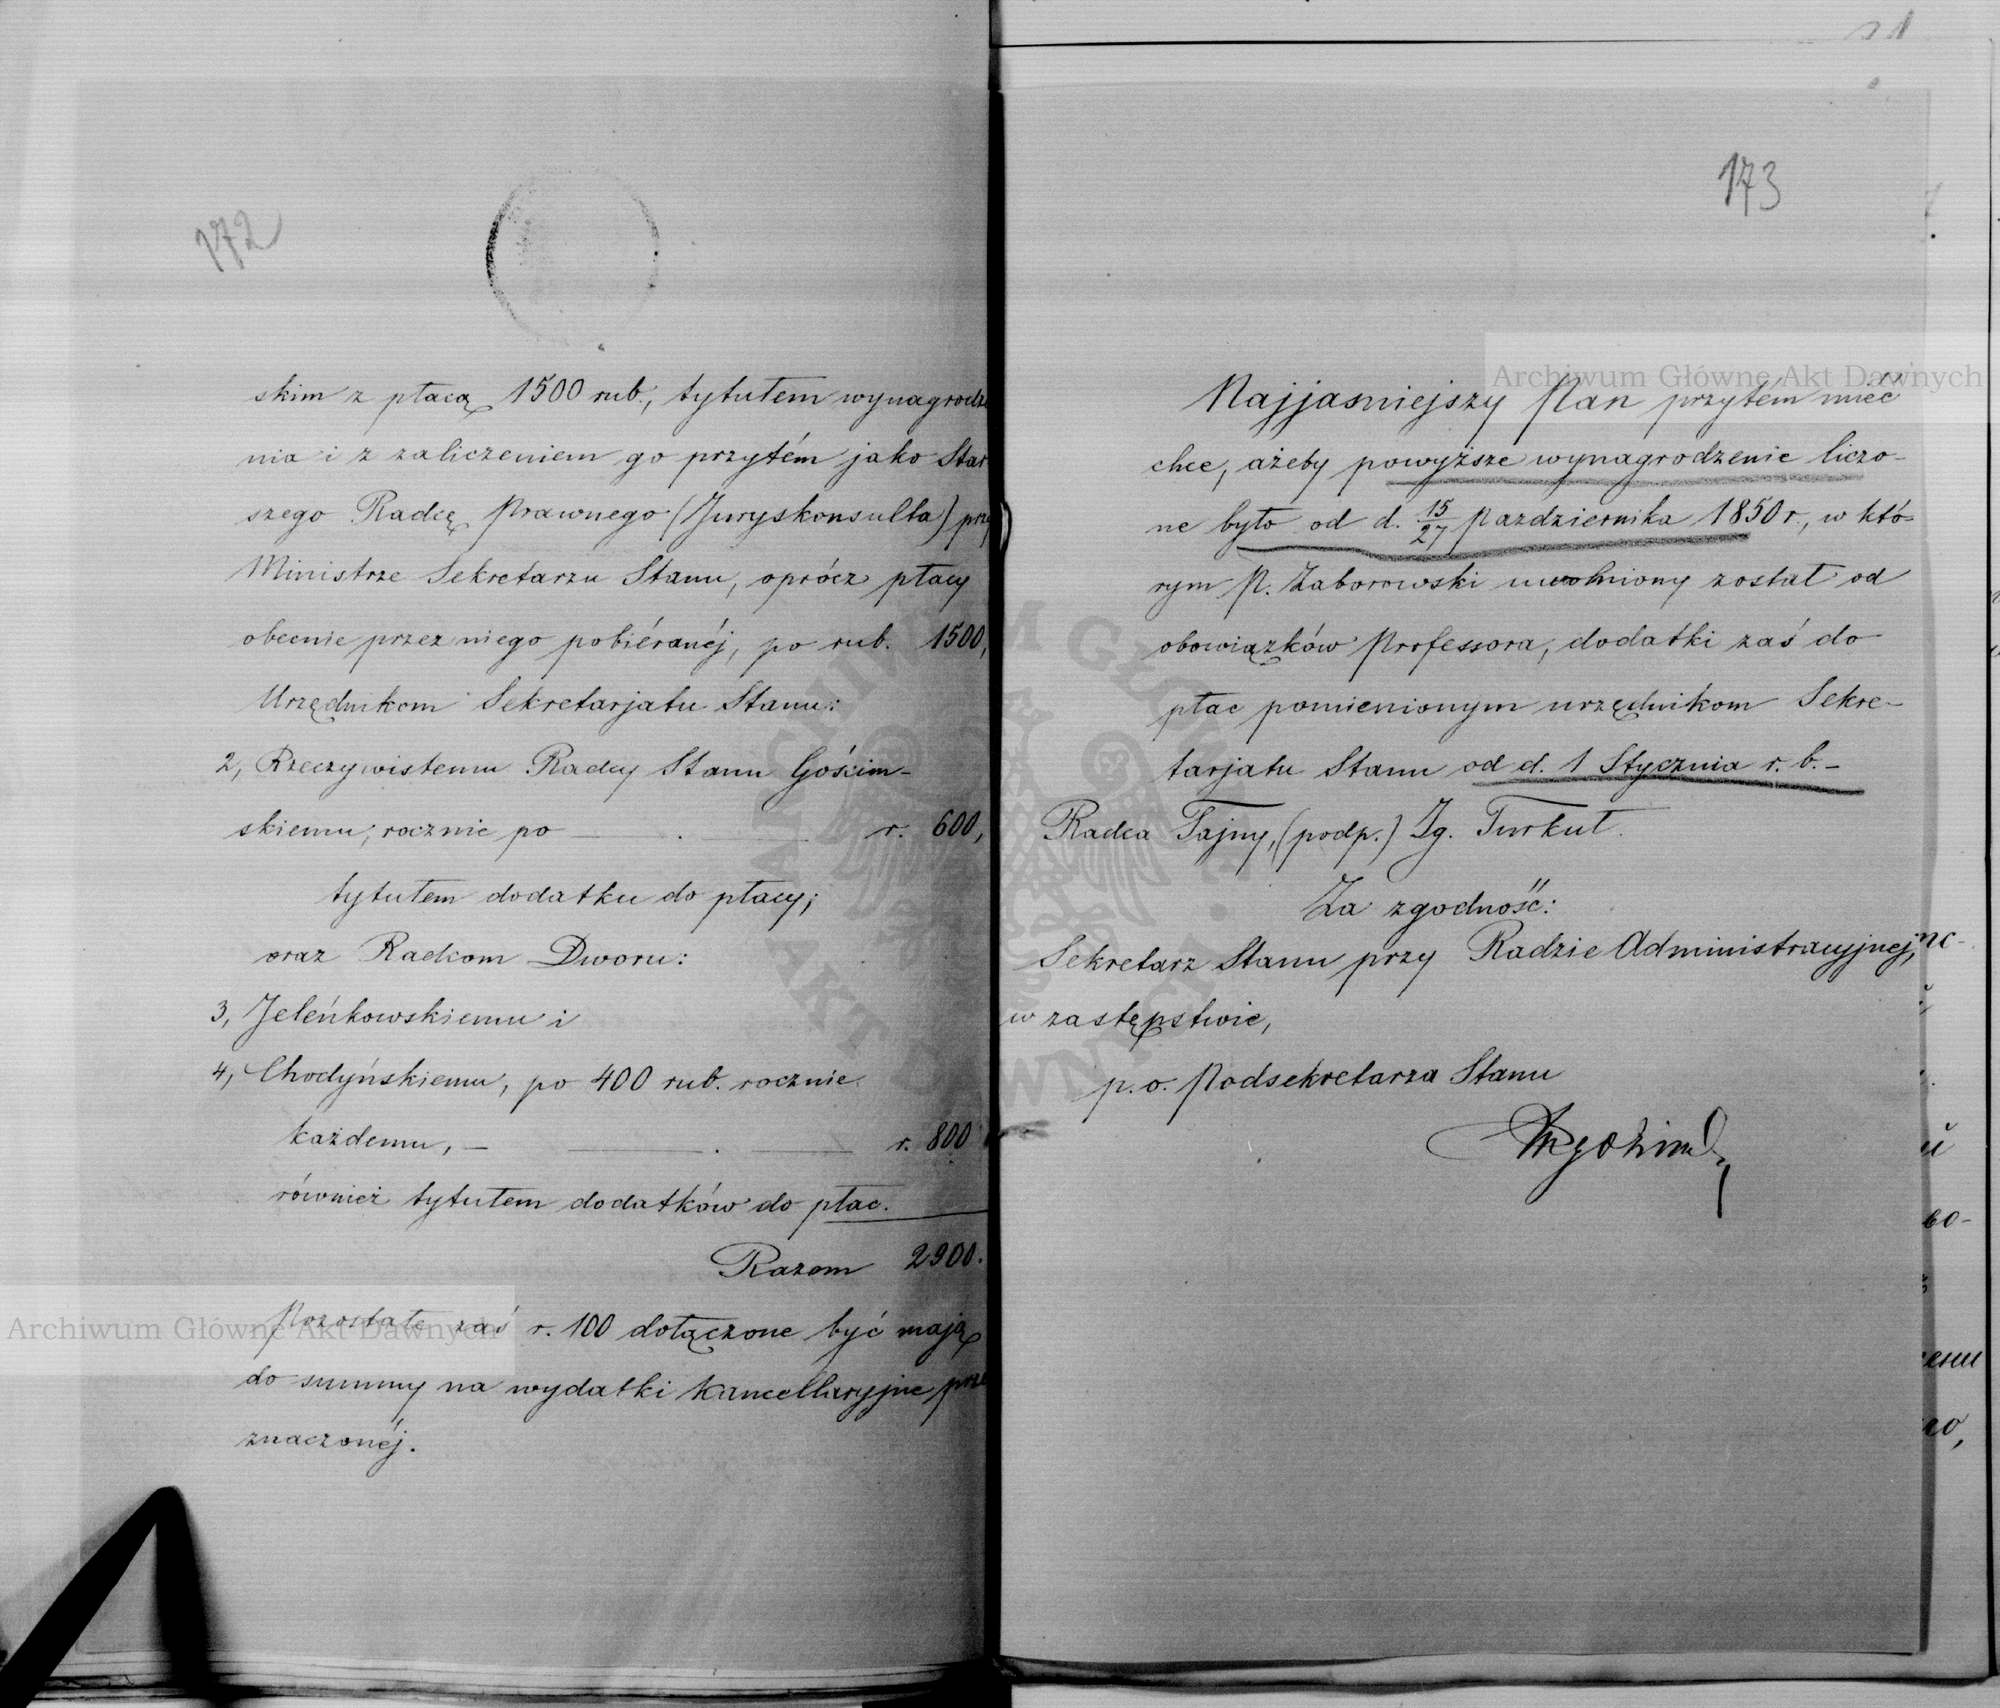 172
skim z płacą 1500 rub., tytułem wynagrodze
nia i z zaliczeniem go przytém jako Star
szego Radcę Prawnego (Juryskonsulta) przy
Ministrze Sekretarzu Stanu, oprócz płacy
obecnie przez niego pobiéranéj, po rub. 1500,
Urzędnikom Sekretarjatu Stanu:
2, Rzeczywistemu Radcy Stanu Gościm-
skiemu, rocznie po r. 600,
tytułem dodatku do płacy;
oraz Radcom Dworu:
3, Jeleńkowskiemu i
4, Chodyńskiemu, po 400 rub. rocznie
każdemu, — r. 800
również tytułem dodatków do płac.
Razem 2900.
Pozostałe zaś r. 100 dołączone być mają
do summy na wydatki kancellaryjne prze
znaczonéj.
173
Najjaśniejszy Pan przytém mieć
chce, ażeby powyższe wynagrodzenie liczo-
ne było od d. 15/27 Października 1850 r., w któ-
rym P. Zaborowski uwolniony został od
obowiązków Professora, dodatki zaś do
płac pomienionym urzędnikom Sekre-
tarjatu Stanu od d. 1 Stycznia r. b.-
Radca Tajny, (podp.) Ig. Turkuł.
Za zgodność:
Sekretarz Stanu przy Radzie Administracyjnej,
w zastępstwie,
p. o. Podsekretarza Stanu
Archiwum Główne Akt Dawnych
Archiwum Główne Akt Dawnych
ARCHIWUM GŁÓWNE AKT DAWNYCH W